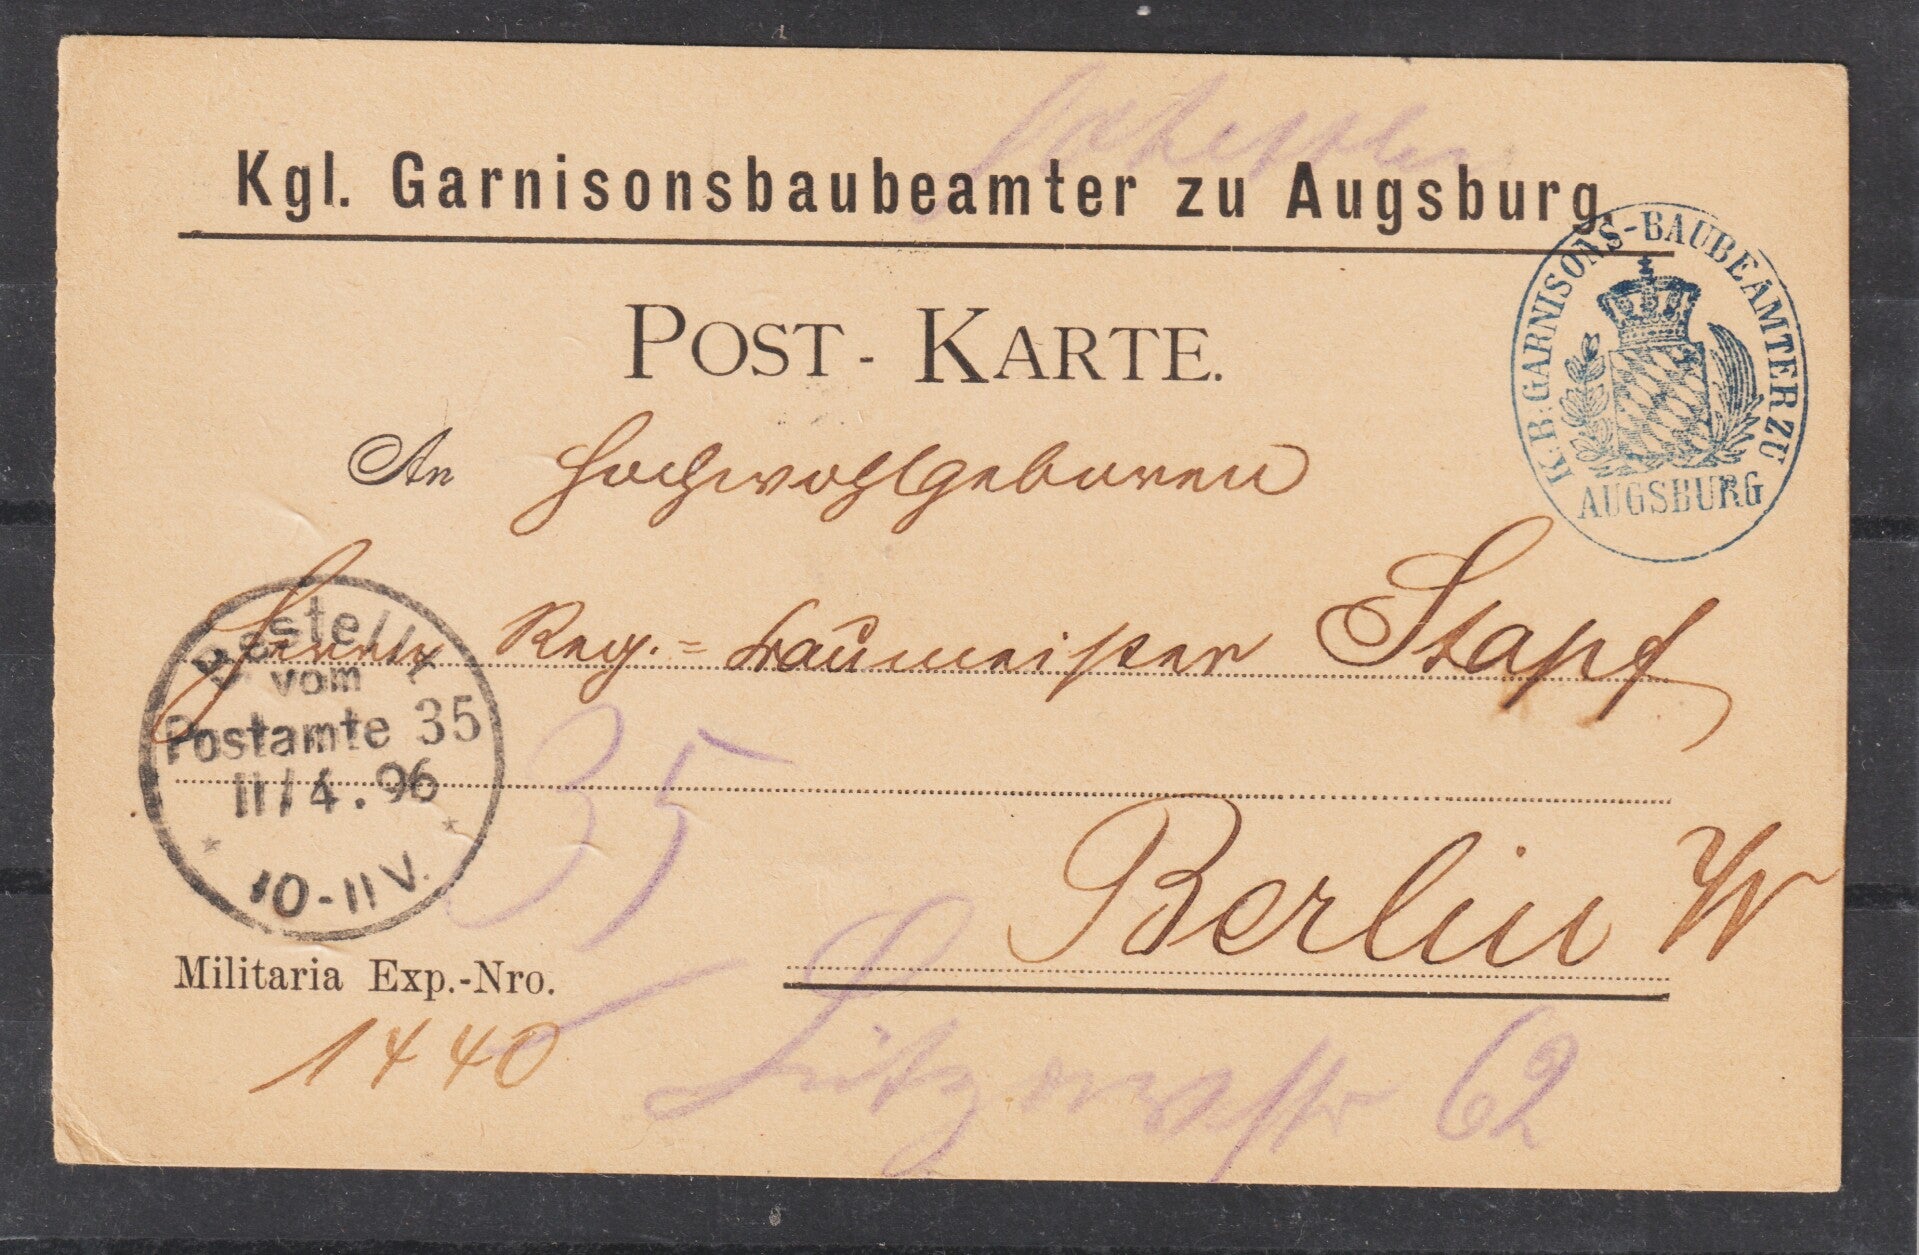 Kgl. Garnisonsbaubeamter zu Augsburg.
K. B. GARNISONS-BAUBEAMTER ZU
AUGSBURG
POST-KARTE.
An Hochwohlgeboren
Herrn Reg.=Baumeister Stapf
Bestellt
vom
Postamte 35
11/4.96
10-11V.
35
Berlin W
Militaria Exp.-Nro.
1440
Lützowstr 62